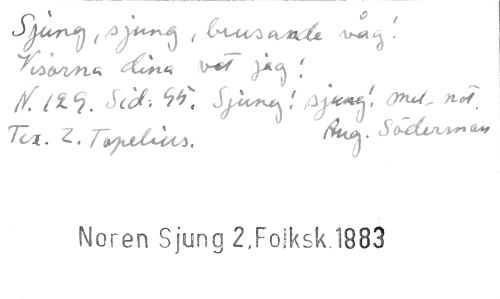 Sjung, sjung, brusande våg!
Visorna dina vet jag!
N. 129. Sid. 95. Sjung! sjung! mel. not.
Tex. Z. Topelius. Aug. Söderman
Noren Sjung 2, Folksk. 1883